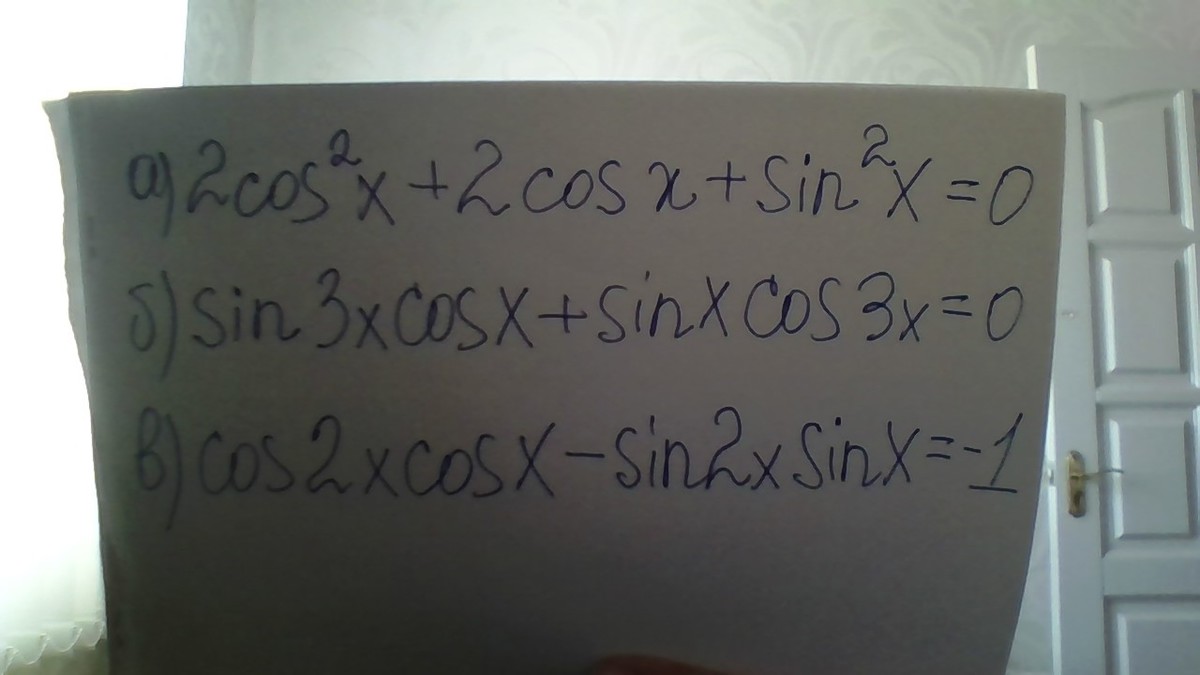 а) 2cos²x + 2cos x + sin²x = 0
б) sin3xcosx + sinxcos3x = 0
в) cos2xcosx - sin2xsinx = -1